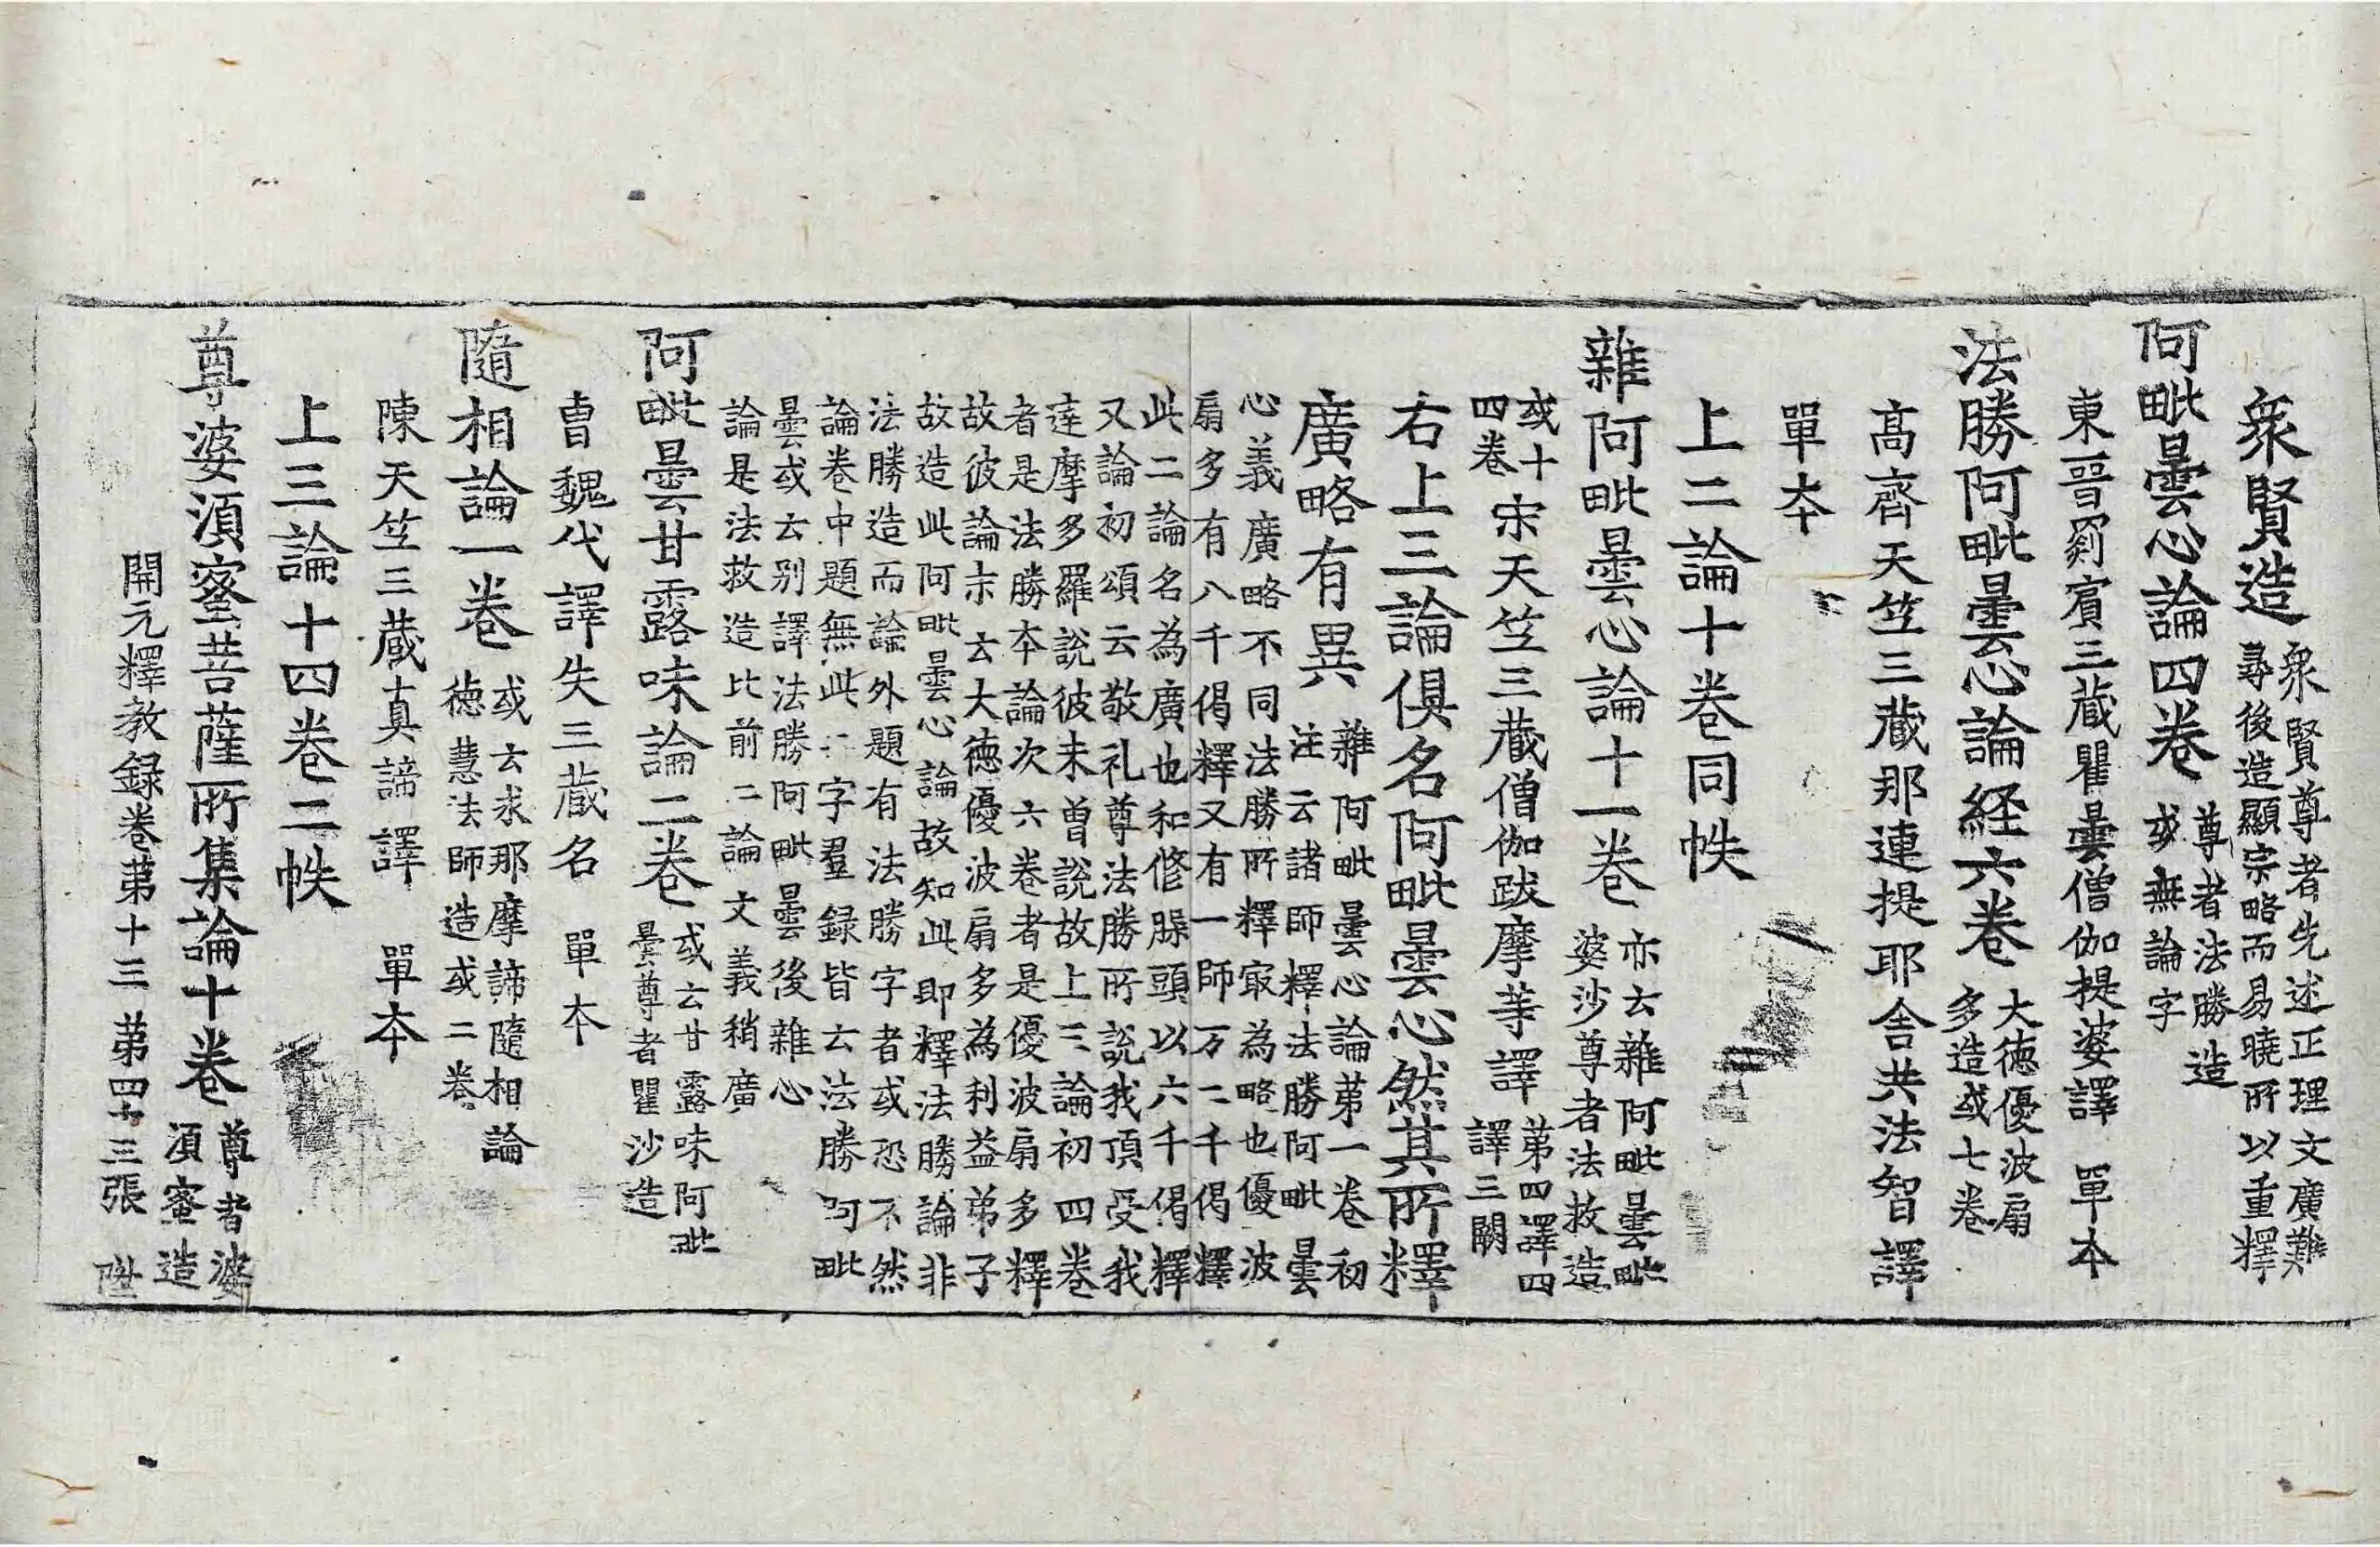 衆賢造衆賢尊者先述正理文廣難
尋後造顯宗略而易曉所以重釋
阿毗曇心論四卷尊者法勝造
或無論字
東晉罽賓三藏瞿曇僧伽提婆譯 單本
法勝阿毗曇心論経六卷大德優波扇
多造或七卷
髙齊天竺三藏那連提耶舍共法智譯
單本
上二論十卷同帙
雜阿毗曇心論十一卷亦云雜阿毗曇毗
婆沙尊者法救造
或十
四卷宋天竺三藏僧伽跋摩等譯第四譯四
譯三闕
右上三論俱名阿毗曇心然其所釋
廣略有異雜阿毗曇心論第一卷初
注云諸師釋法勝阿毗曇
心義廣略不同法勝所釋㝡為略也優波
扇多有八千偈釋又有一師万二千偈釋
此二論名為廣也和修槃頭以六千偈釋
又論初頌云敬礼尊法勝所說我頂受我
達摩多羅說彼未曾說故上三論初四卷
者是法勝本論次六卷者是優波扇多釋
故彼論末云大德優波扇多為利益弟子
故造此阿毗曇心論故知此即釋法勝論非
法勝造而論外題有法勝字者或恐不然
論卷中題無此二字羣録皆云法勝阿毗
曇或云别譯法勝阿毗曇後雜心
論是法救造比前二論文義稍廣
阿毗曇甘露味論二卷或云甘露味阿毗
曇尊者瞿沙造
曹魏代譯失三藏名 單本
隨相論一卷或云求那摩諦隨相論
德慧法師造或二卷
陳天竺三藏真諦譯 單本
上三論十四卷二帙
尊婆湏蜜菩薩所集論十卷尊者婆
湏蜜造
開元釋教録卷第十三 第四十三張 陞